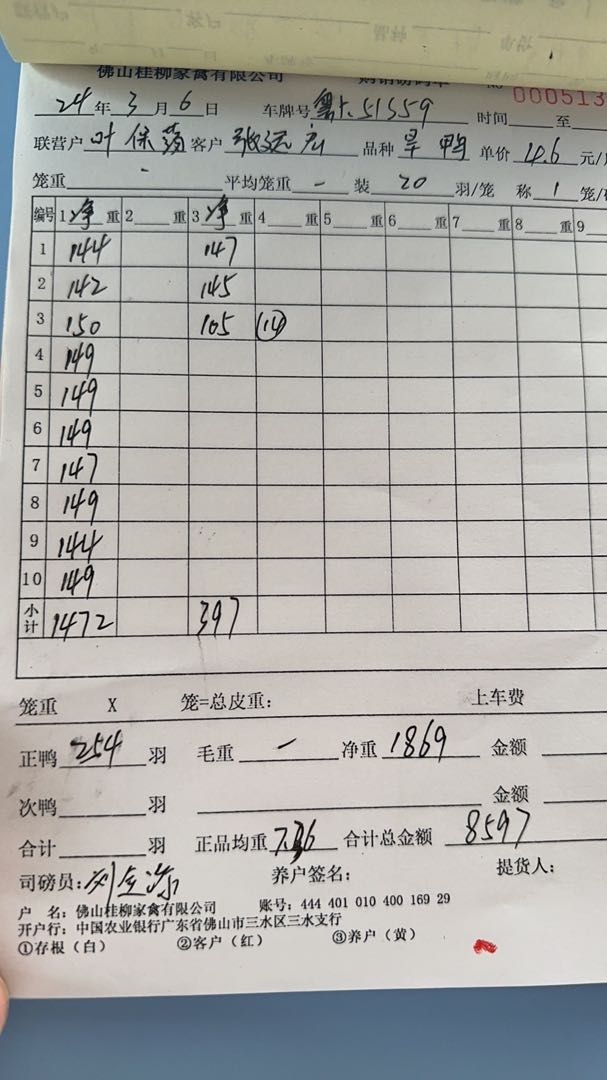 佛山桂柳家禽有限公司 购销磅码单 №
000513
24年3月6日 车牌号 51559 时间 至
联营户 叶保 客户 张远 品种 旱鸭 单价 4.6 元/
笼重 - 平均笼重 - 装 20 羽/笼 称 1 笼/
编号 1净重 2 重 3净重 4 重 5 重 6 重 7 重 8 重 9
1 144 147
2 142 145
3 150 105 (14)
4 149
5 149
6 149
7 147
8 149
9 144
10 149
小计 1472 397
笼重 X 笼=总皮重: 上车费
正鸭 254 羽 毛重 - 净重 1869 金额
次鸭 羽 金额
合计 羽 正品均重 7.36 合计总金额 8597
司磅员: 刘 养户签名: 提货人:
户 名: 佛山桂柳家禽有限公司 账号: 444 401 010 400 169 29
开户行: 中国农业银行广东省佛山市三水区三水支行
①存根(白) ②客户(红) ③养户(黄)